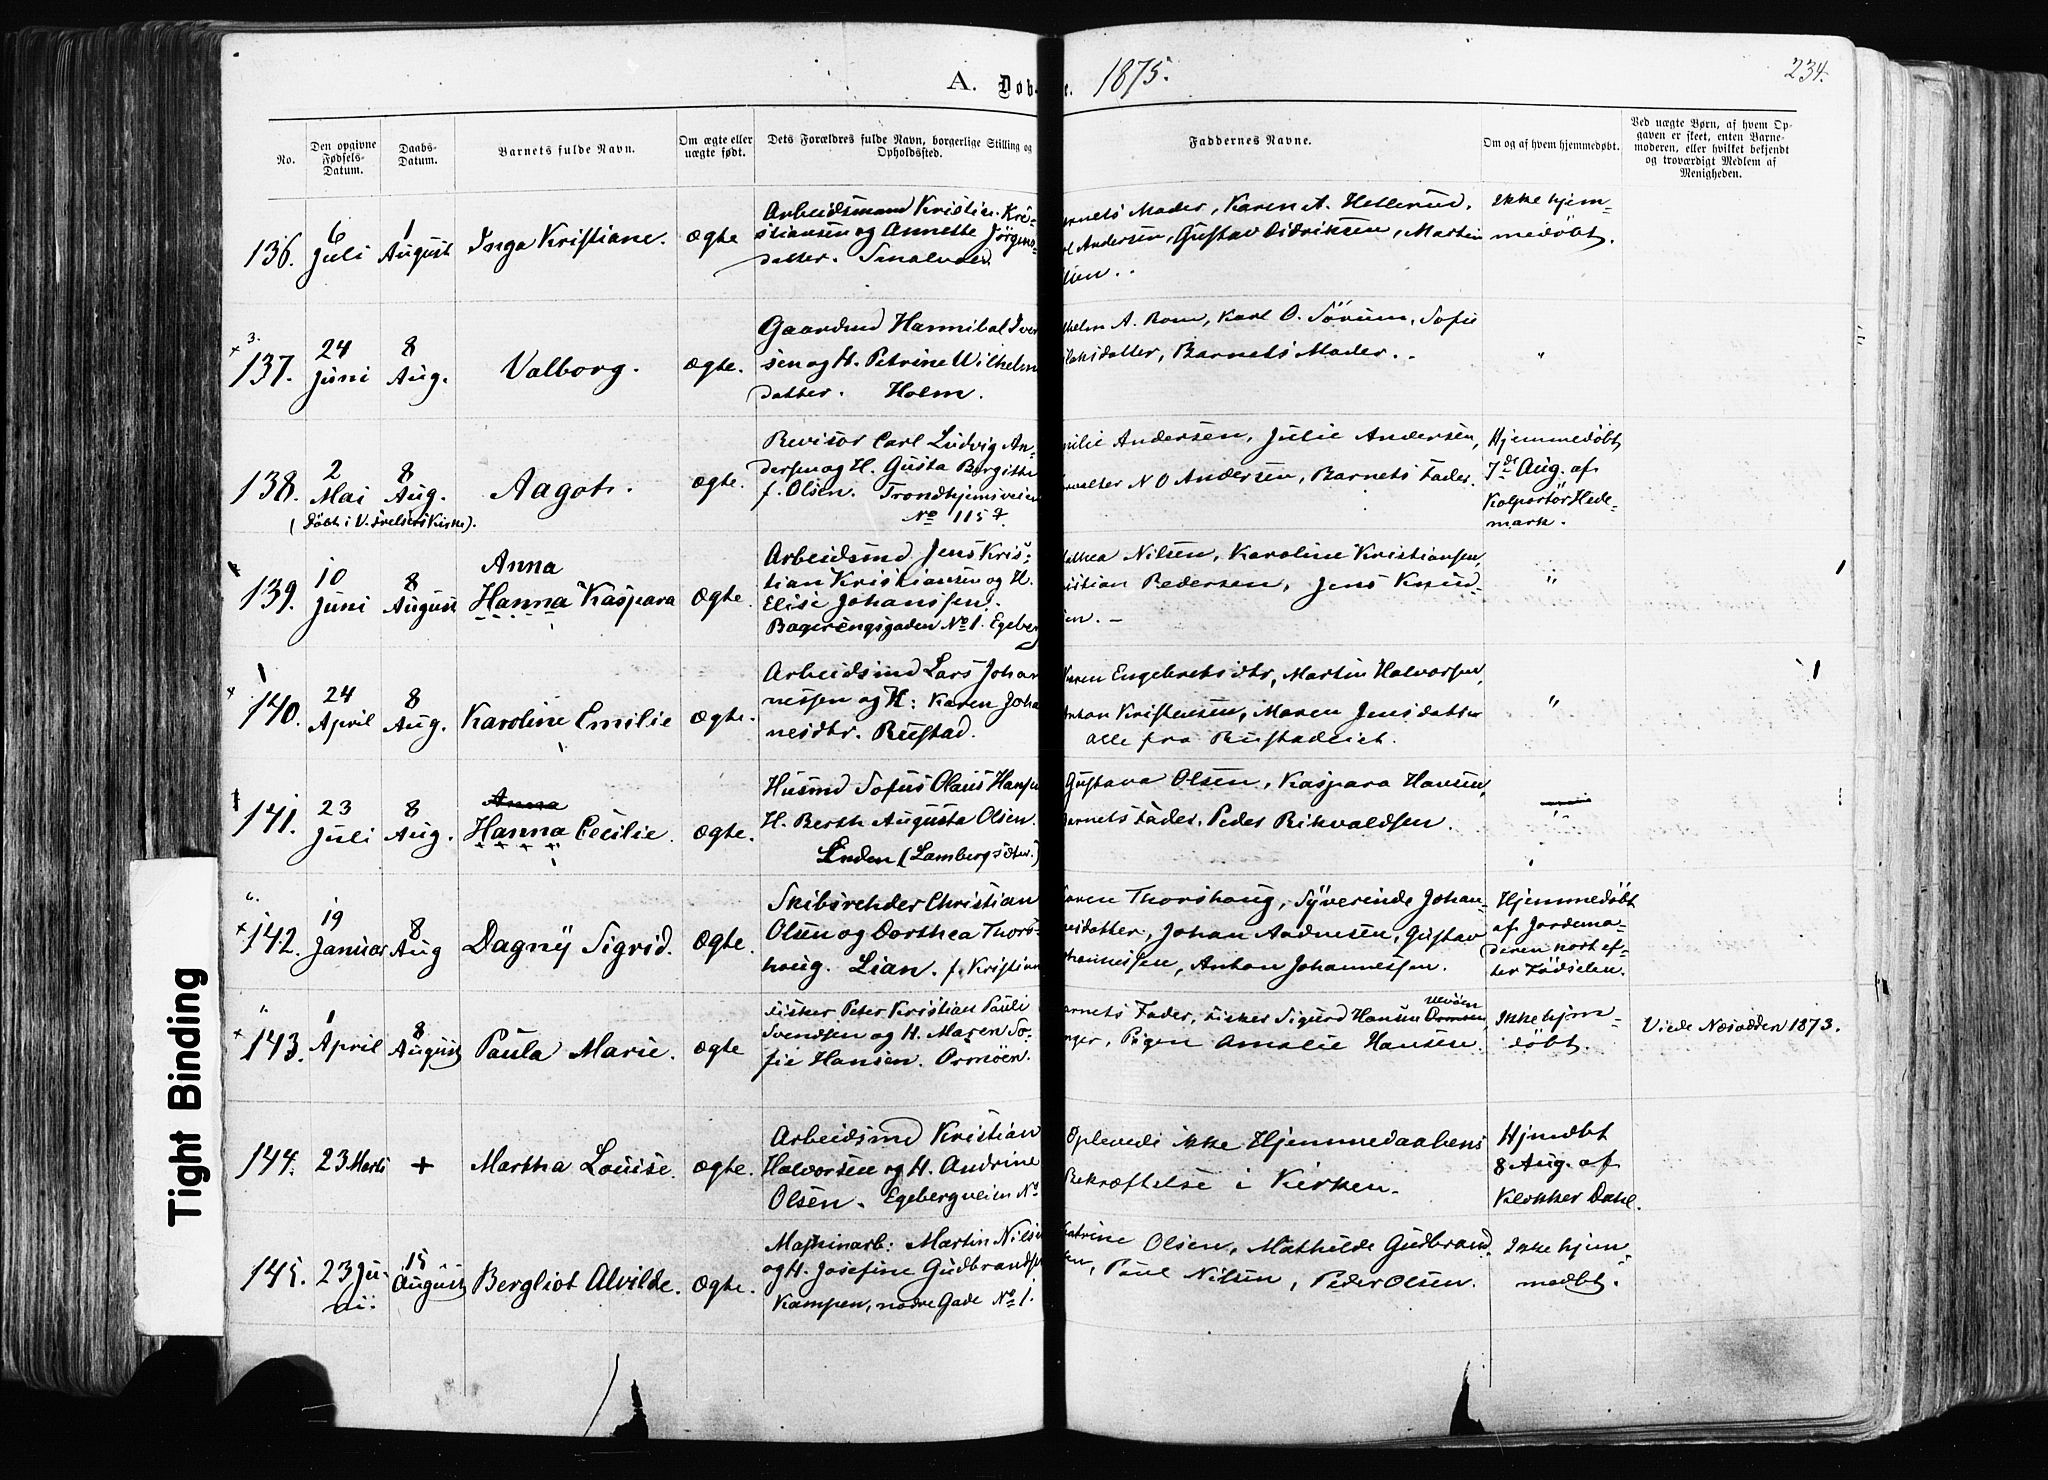 A. Døb e. 1875.
234.
No.
Den opgivne Fødsels-Datum.
Daabs-Datum.
Barnets fulde Navn.
Om ægte eller uægte født.
Dets Forældres fulde Navn, borgerlige Stilling og Opholdssted.
Faddernes Navne.
Om og af hvem hjemmedøbt.
Ved uægte Børn, af hvem Op-
gaven er skeet, enten Barne-
moderen, eller hvilket bekjendt
og troværdigt Medlem af
Menigheden.
136. 6 Juli 1 August Inga Kristiane. ægte
Arbeidsmand Kristian Kri-
stiansen og Annette Jörgens-
datter.
arnets Moder, Karen A. Hellerud,
Andersen, Gustav Didriksen, Martin
lsen.
Ikke hjem-
medöbt.
137. 24 Juni 8 Aug. Valborg. ægte.
Gaardmd Hannibal Iver
sen og H. Petrine Wilhelm
datter. Holm.
helm A. Rom, Karl O. Sörum, Sofie
laksdatter, Barnets Moder.
"
138. 2 Mai 8 Aug. Aagot. ægte.
(döbt i V. Frelsers Kirke).
Revisor Carl Ludvig An-
dersen og H. Gusta Birgitte
f. Olsen. Trondhjemsveien
No 115
milie Andersen, Julie Andersen,
rvalter N O Andersen, Barnets Fader.
Hjemmedöbt
7de Aug. af
Kolportör Hede-
mark.
139. 10 Juni 8 August Anna
Hanna Kaspara ægte.
Arbeidsmd Jens Kris-
tian Kristiansen og H.
Elise Johanssen.
No 1. Egeberg
thea Nilsen, Karoline Kristiansen,
istian Pedersen, Jens Knud-
sen.
"
140. 24 April 8 Aug. Karoline Emilie ægte.
Arbeidsmd Lars Johan
nessen og H: Karen Joha
nesdtr. Rustad.
Karen Engebretsdtr, Martin Halvorsen,
Anton Kristensen, Maren Jensdatter
alle fra Rustadeiet.
"
141. 23 Juli 8 Aug. Anna
Hanna Cecilie. ægte.
Husmd Sofus Olaus Hansen
H. Berth Augusta Olsen.
Enden (Lambergsæter.)
Gustava Olsen, Kaspara Hansen,
Barnets Fader, Peder Rikvaldsen.
"
142. 19 Januar 8 Aug Dagny Sigrid. ægte.
Skibsreder Christian
Olsen og Dorthea Thors-
haug. Lian. f. Kristian
Karen Thorshaug, Syverinde Johan-
nesdatter, Johan Andresen, Gustav
ohannessen, Anton Johannessen.
Hjemmedöbt
af Jordemo-
deren kort ef-
ter Födselen.
143. 1 April 8 August Paula Marie. ægte
Fisker Peter Kristian Pauli
Svendsen og H. Maren So-
fie Hansen. Ormöen.
arnets Fader, Fisker Sigurd Hansen
nger, Pigen Amalie Hansen.
Ikke hjm-
döbt.
Viede Næsodden 1873.
144. 23 Marts + Martha Louise. ægte.
Arbeidsmd Kristian
Halvorsen og H. Andrine
Olsen. Egebergveien No
Oplevede ikke Hjemmedaabens
Bekræftelse i Kirken.
Hjmdbt
8 Aug. af
Klokker Dahl.
145. 23 Ju-
ni: 15 August Bergliot Alvilde. ægte.
Maskinarb: Martin Nilse
og H. Josefine Gudbrandse
Kampen, nordre Gade No 1.
Katrine Olsen, Mathilde Gudbrand
sen, Paul Nilsen, Peder Olsen.
Ikke hjem-
medbt.
Tight Binding